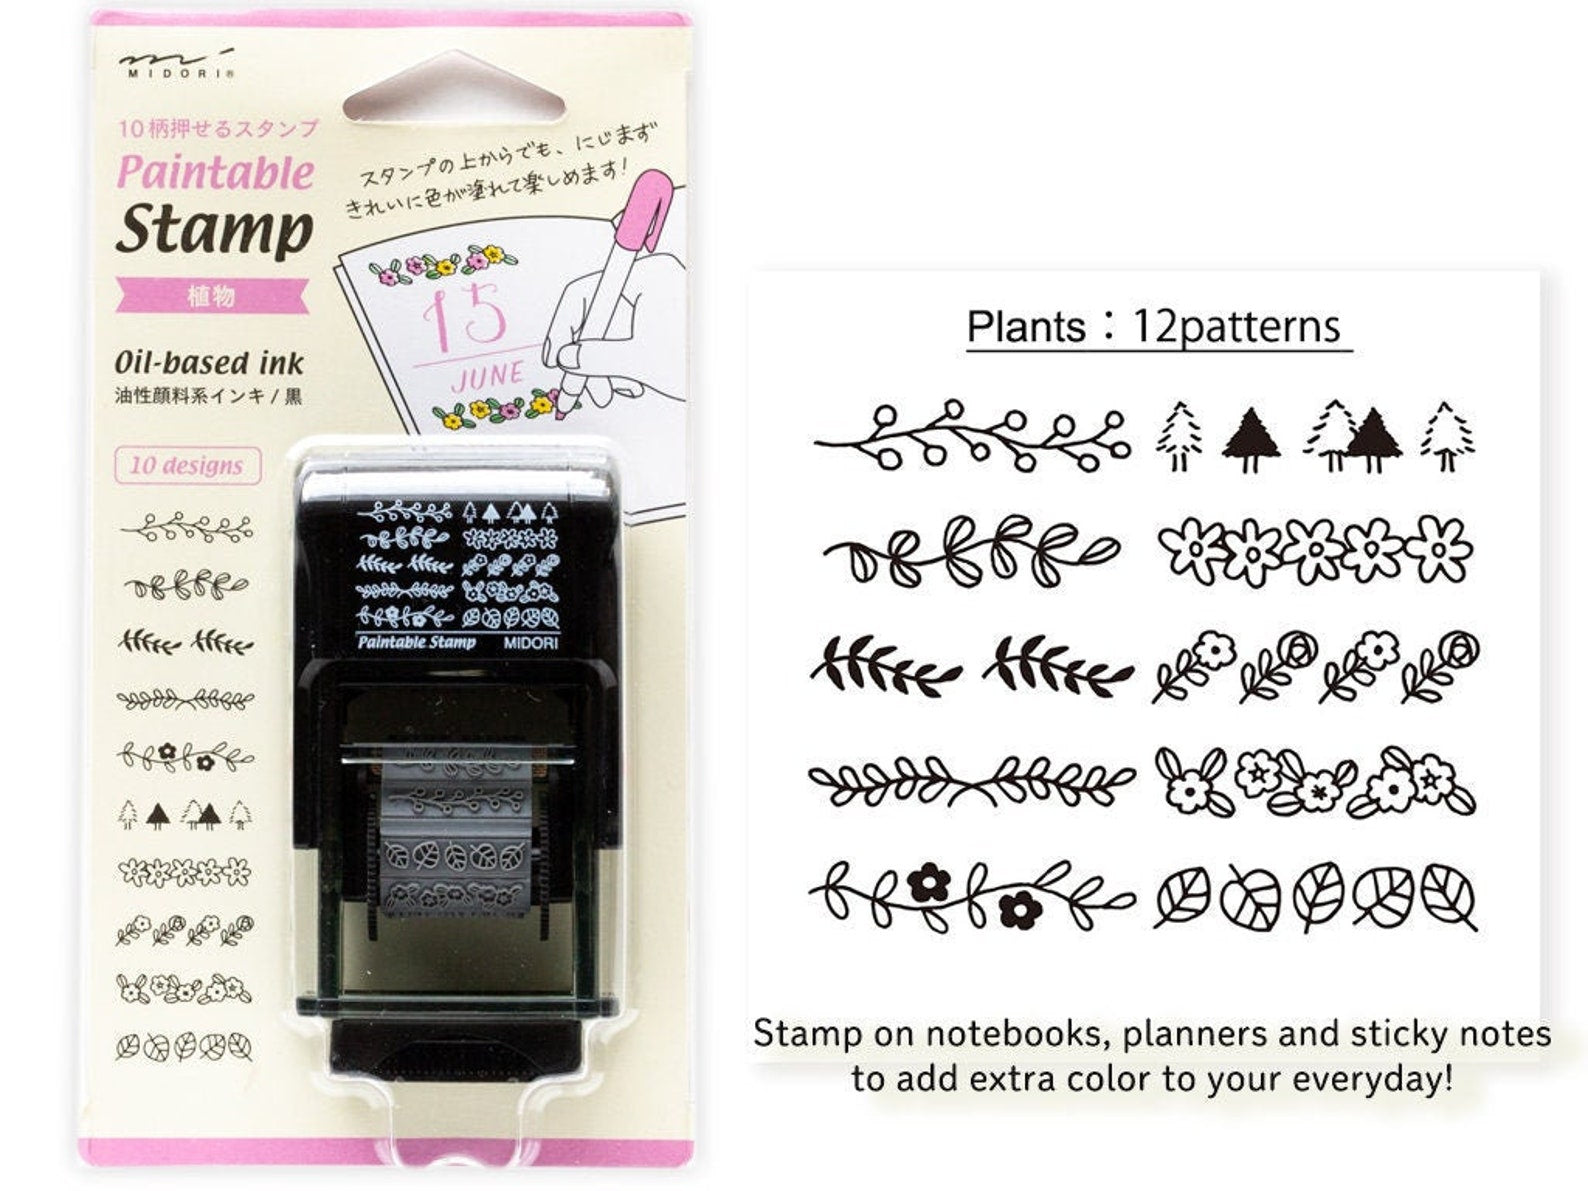 MIDORI®
10柄押せるスタンプ
Paintable
Stamp
植物
Oil-based ink
油性顔料系インキ / 黒
スタンプの上からでも、にじまず
きれいに色が塗れて楽しめます!
15
JUNE
10 designs
Paintable Stamp MIDORI
Plants：12patterns
Stamp on notebooks, planners and sticky notes
to add extra color to your everyday!